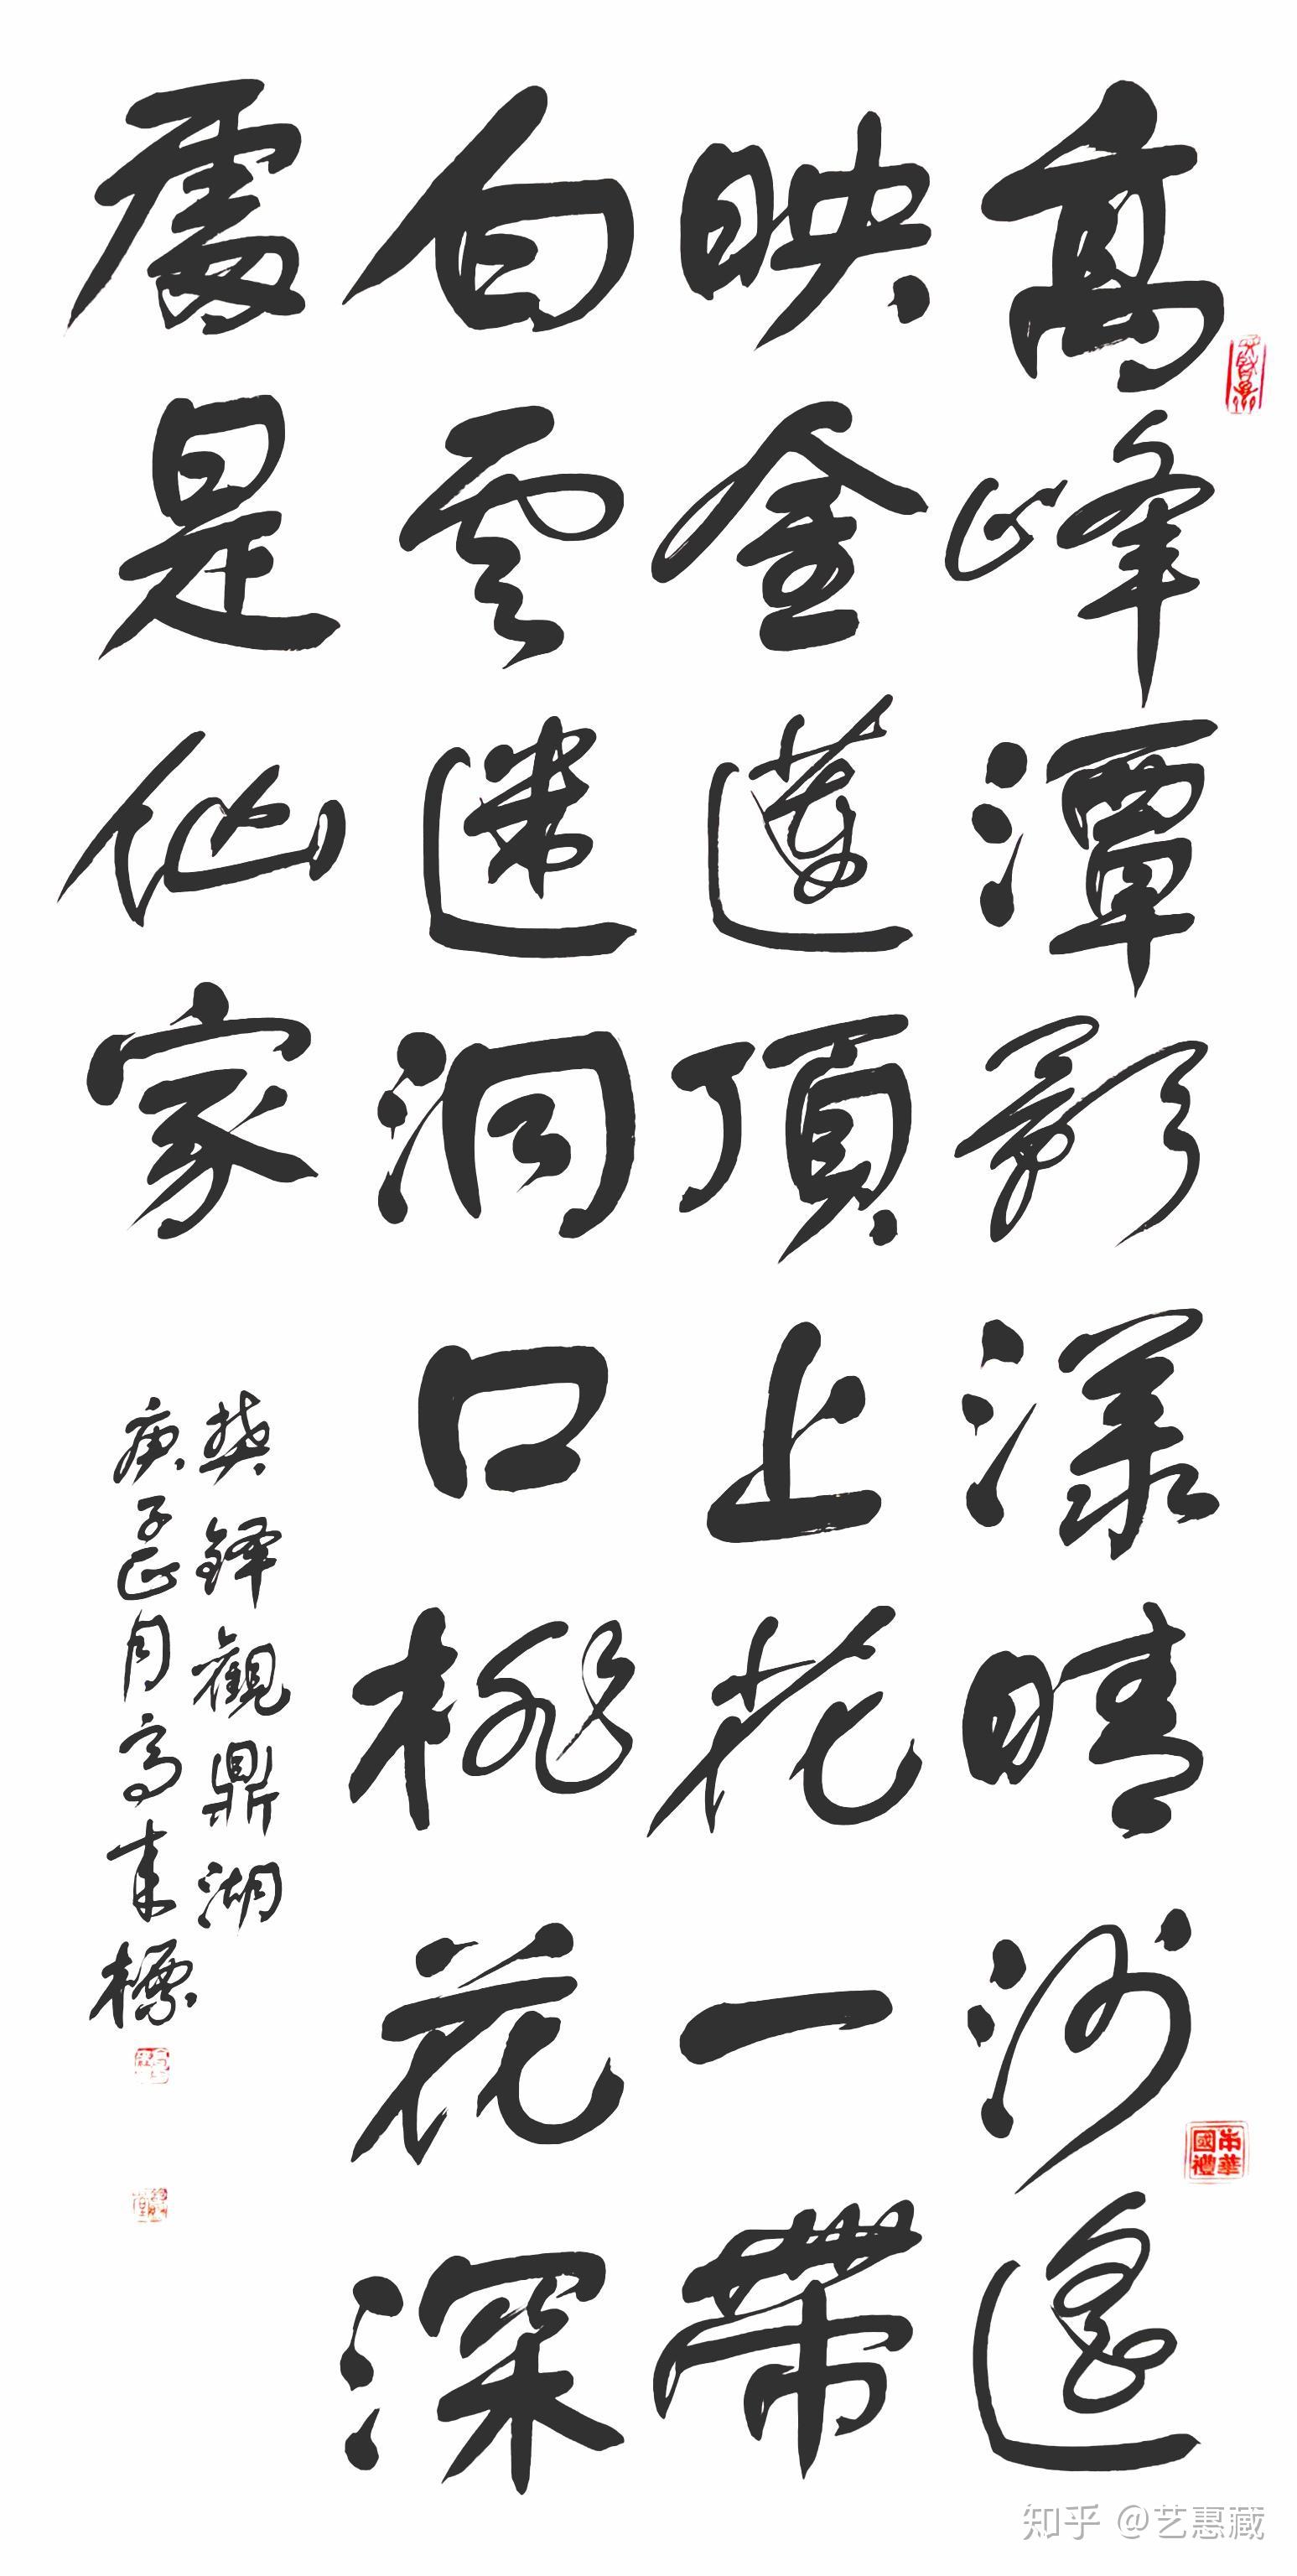 高峰潭影漾晴沙遙
映金蓮頂上花一帶
白雲迷洞口桃花深
處是仙家
樊鐸觀鼎湖
庚子正月高標
中華國禮
知乎 @艺惠藏